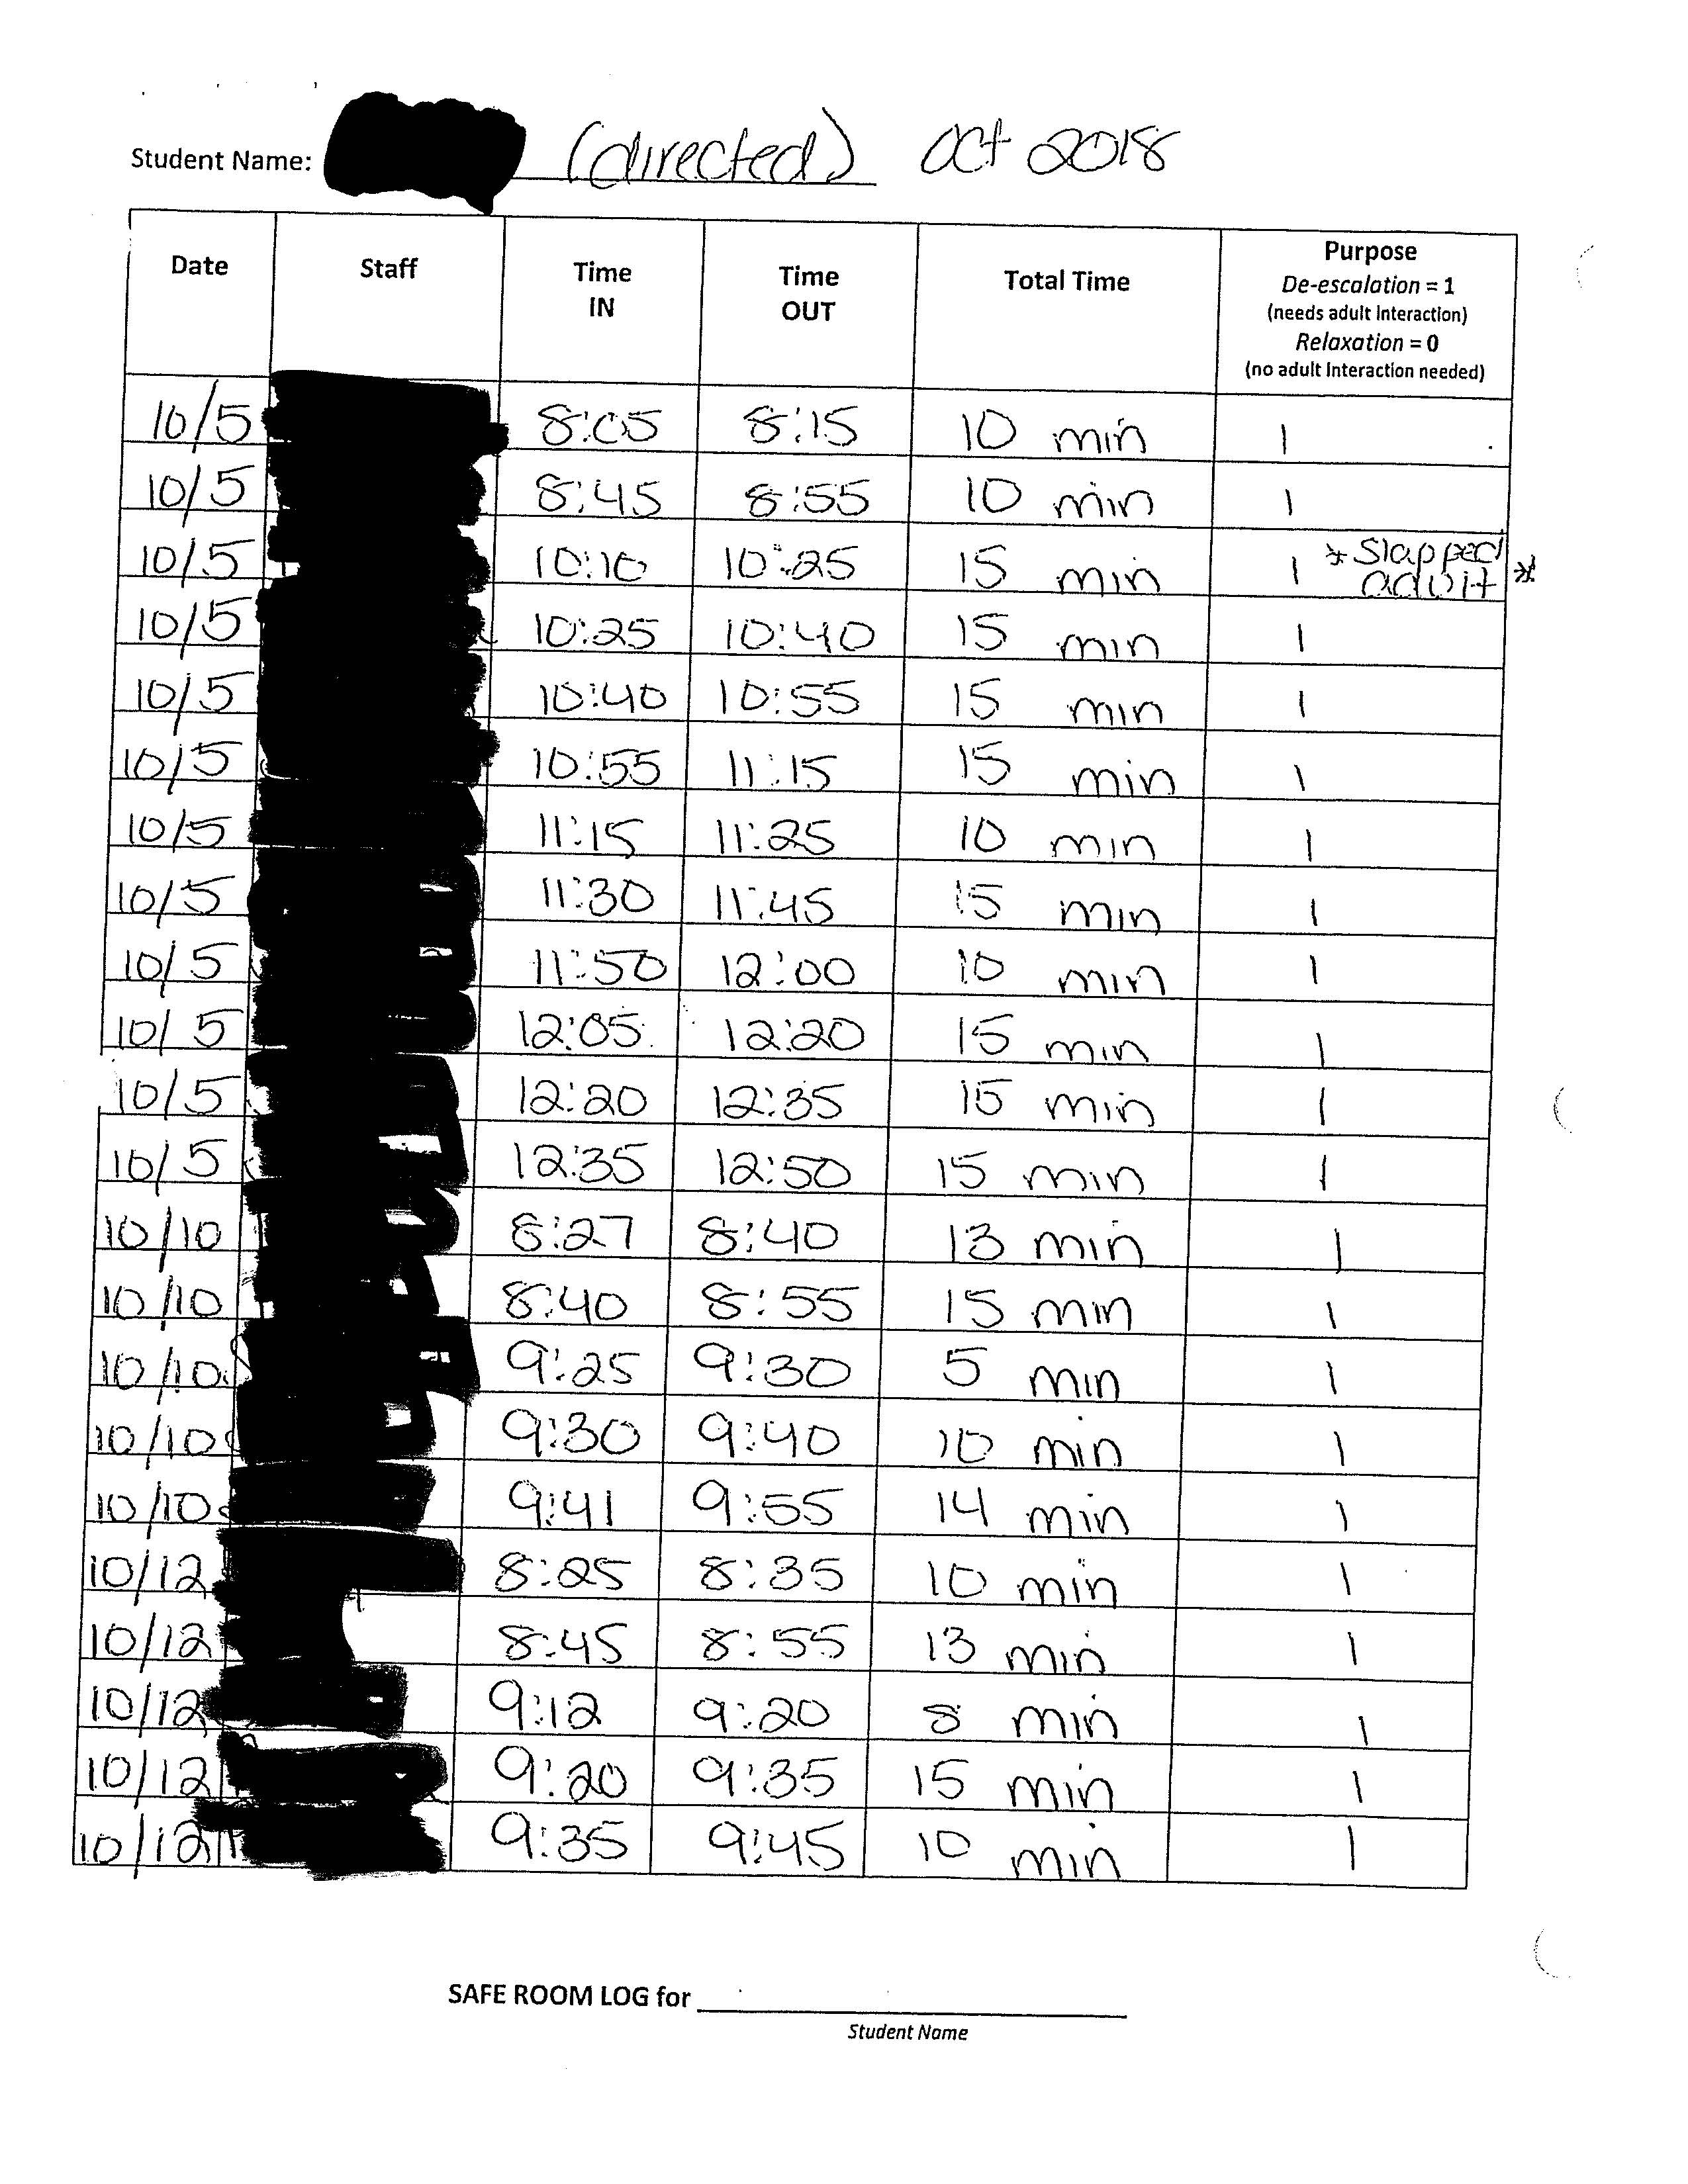 Student Name: (directed) Oct 2018
Date Staff Time IN Time OUT Total Time Purpose
De-escalation = 1
(needs adult interaction)
Relaxation = 0
(no adult interaction needed)
10/5 8:05 8:15 10 min 1
10/5 8:45 8:55 10 min 1
10/5 10:10 10:25 15 min 1 * Slapped adult *
10/5 10:25 10:40 15 min 1
10/5 10:40 10:55 15 min 1
10/5 10:55 11:15 15 min 1
10/5 11:15 11:25 10 min 1
10/5 11:30 11:45 15 min 1
10/5 11:50 12:00 10 min 1
10/5 12:05 12:20 15 min 1
10/5 12:20 12:35 15 min 1
10/5 12:35 12:50 15 min 1
10/10 8:27 8:40 13 min 1
10/10 8:40 8:55 15 min 1
10/10 9:25 9:30 5 min 1
10/10 9:30 9:40 10 min 1
10/10 9:41 9:55 14 min 1
10/12 8:25 8:35 10 min 1
10/12 8:45 8:55 13 min 1
10/12 9:12 9:20 8 min 1
10/12 9:20 9:35 15 min 1
10/12 9:35 9:45 10 min 1
SAFE ROOM LOG for
Student Name